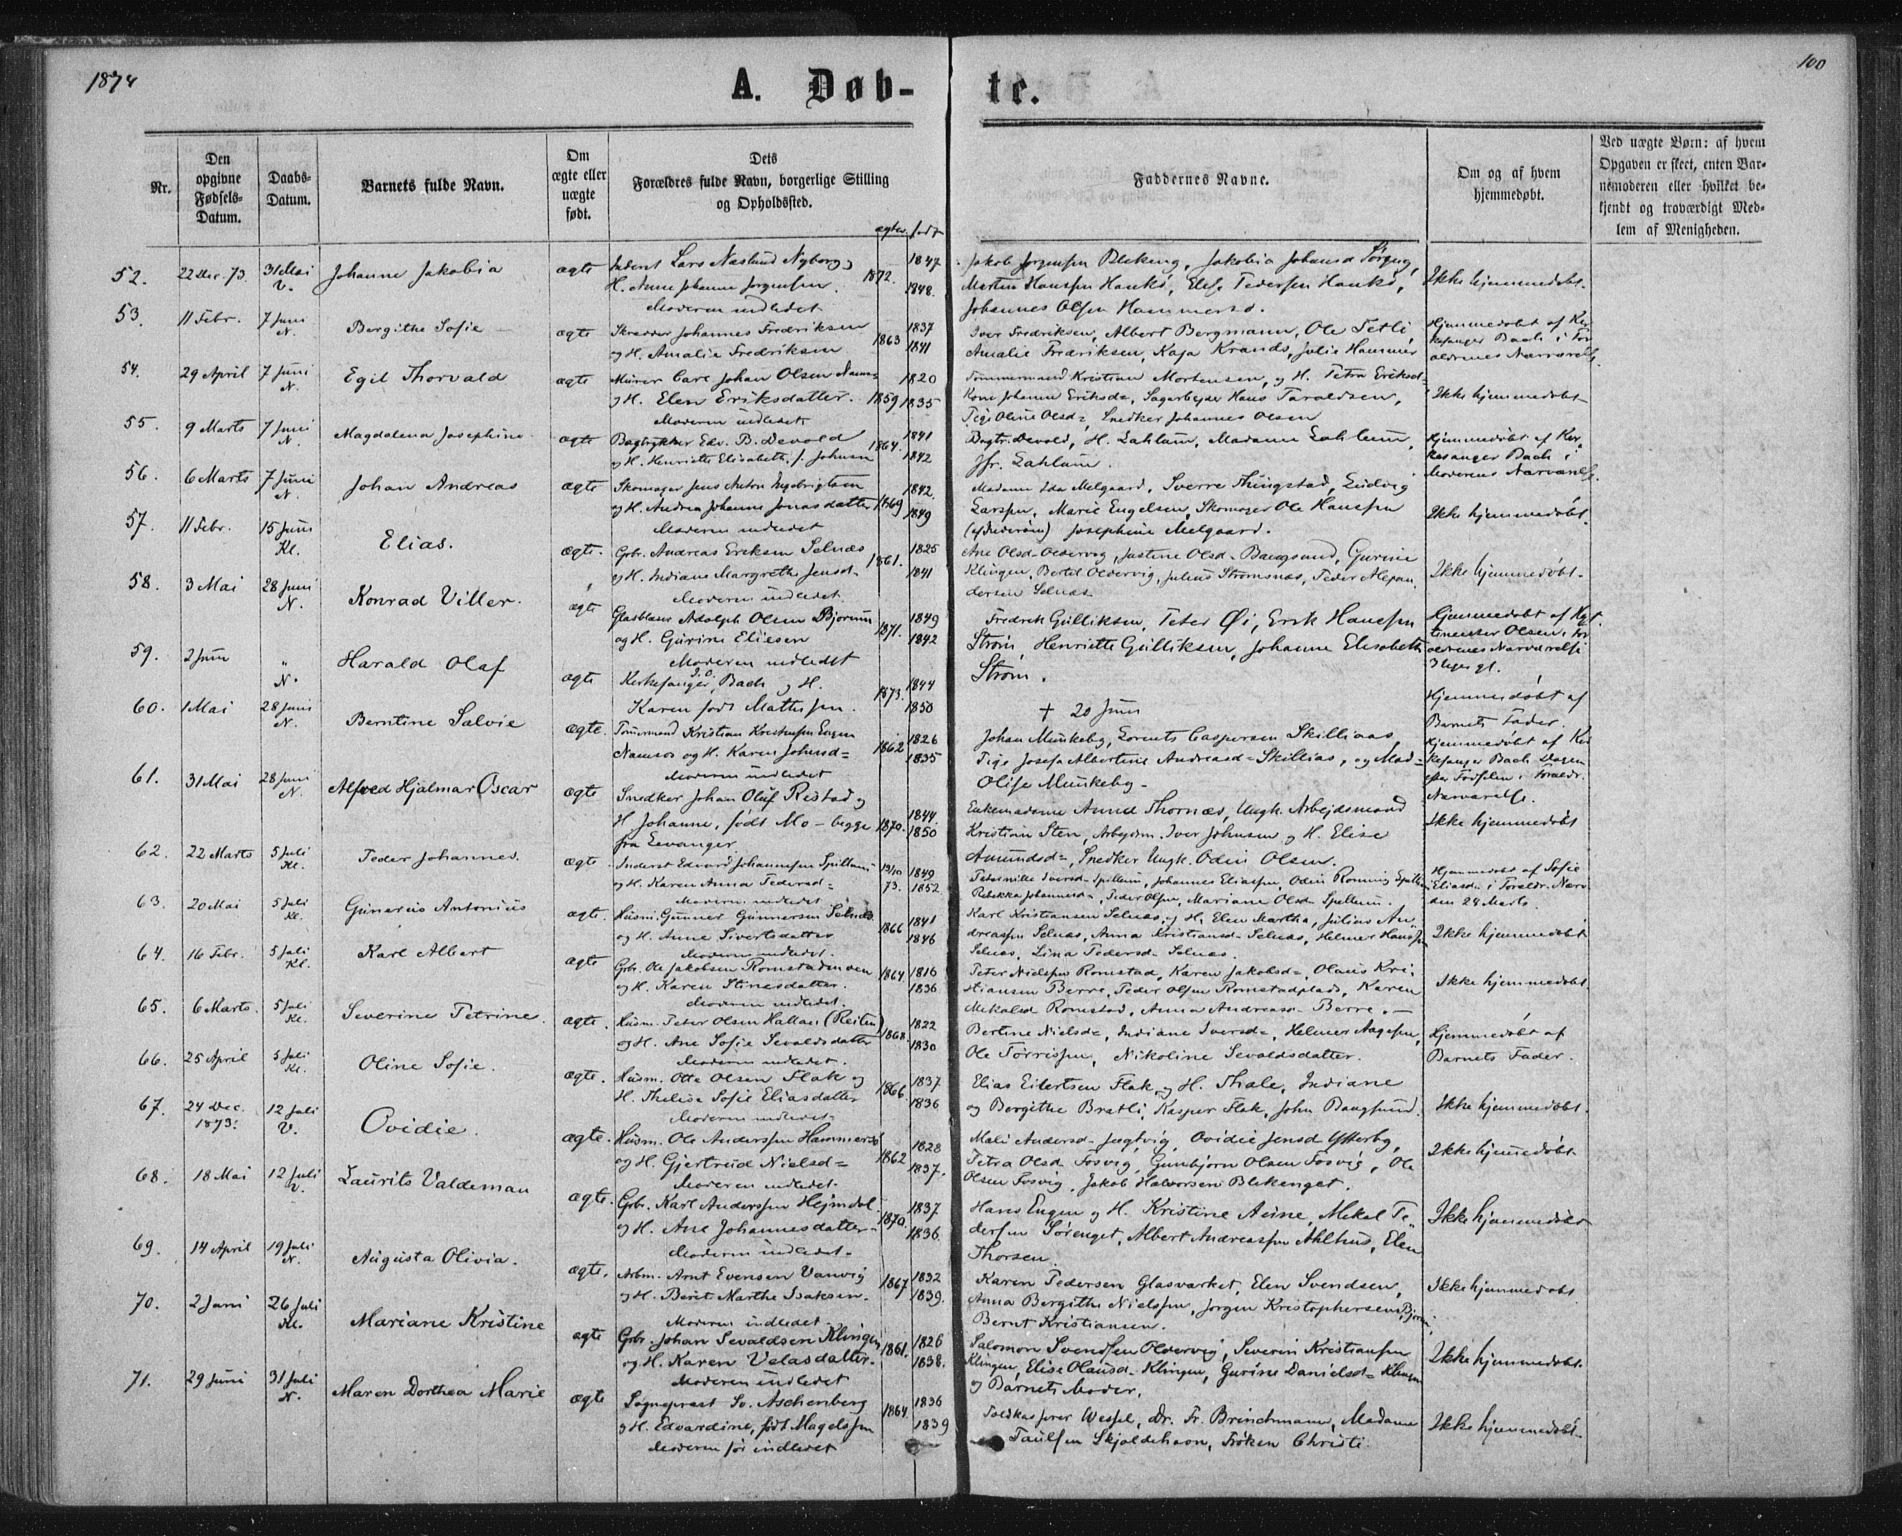 1874
100
A. Døb-
te.
Nr.
Den opgivne Fødsels-Datum.
Daabs-Datum.
Barnets fulde Navn.
Om ægte eller uægte født.
Dets Forældres fulde Navn, borgerlige Stilling og Opholdssted.
Faddernes Navne.
Om og af hvem hjemmedøbt.
Ved uægte Børn: af hvem
Opgaven er skeet, enten Bar-
nemoderen eller hvilket be-
kjendt og troværdigt Med-
lem af Menigheden.
52. 22 Dec. 73. 31 Mai V. Johanne Jakobia ægte Inderst Lars Næslund Nyborg og 1847
H. Anne Johanne Jørgensen. 1872. 1848.
Moderen indledet
Jakob Jørgensen Blekeng, Jakobia Johansd
Martin Hansen Hankø, Else Pedersen Hankø, Ikke hjemmedøbt.
Johannes Olsen Hammersø.
53. 11 Febr. 7 Juni N. Bergithe Sofie ægte Skrædder Johannes Fredriksen 1837
og H. Amalie Fredriksen 1863 1841
Iver Fredriksen, Albert Bergmann, Ole Tetli, Hjemmedøbt af Kir-
Amalie Fredriksen, Kaja Krands, Julie Hammer kesanger Bach i For-
ældrenes Nærværelse.
54. 29 April 7 Juni N. Egil Thorvald ægte Murer Carl Johan Olsen Nams. 1820
og H. Elen Eriksdatter. 1859 1835
Moderen indledet
Tømmermand Kristian Mortensen, og H. Petra Eriksd.
Kone Johanne Eriksd., Sagarbejder Hans Taraldsen, Ikke hjemmedøbt
Pige Oline Olsd., Snedker Johannes Olsen
55. 9 Marts 7 Juni N. Magdalena Josephine ægte Bogtrykker Edv. B. Devold 1841
og H. Henriette Elisabeth, f. Johnsen 1864. 1842
Bogtr. Devold, H. Lahlum, Madame Lahlum, Hjemmedøbt af Kir-
Jfr. Lahlum. kesanger Bach i
Moderens Nærværelse.
56. 6 Marts 7 Juni N. Johan Andreas ægte Skomager Jens Anton Ingebrigtsen 1842.
og H. Andrea Johanne Jonasdatter 1869 1849
Moderen indledet
Madame Ida Melgaard, Sverre Thingstad, Ludvig
Larssen, Marie Engelsen, Skomager Ole Hanssen Ikke hjemmedøbt.
Josephine Melgaard.
57. 11 Febr. 15 Juni Kl. Elias. ægte. Gbr. Andreas Eriksen Selnæs 1825
og H. Indiane Margrethe Jensd. 1861. 1841
Moderen indledet.
Ane Olsd. Oldervig, Justine Olsd. Bangsund, Gurine
Klingen, Bertel Oldervig, Julius Strømsnæs, Peder Alexan- Ikke hjemmedøbt.
dersen Selnæs
58. 3 Mai 28 Juni N. Konrad Viller. ægte Glasblæser Adolph Olsen Bjørum 1849
og H. Gurine Eliesen 1871. 1842
Moderen indledet
Fredrik Gulliksen, Peter Øi, Erik Hanssen Hjemmedøbt af
Strøm, Henriette Gulliksen, Johanne Elisabeth Olsen,
Strøm.
59. 2 Juni " N. Harald Olaf ægte Kirkesanger Bach og H. 1873. 1844
Karen født Mathisen. 1850
+ 20 Juni
Hjemmedøbt af
Barnets Fader.
60. 1 Mai 28 Juni N. Berntine Salvie ægte. Tømmermand Kristian Kristensen Engen 1826
Namsos og H. Karen Johnsd. 1862 1835
Moderen indledet
Johan Munkeby, Lorents Caspersen Skilliaas Hjemmedøbt af Kir-
Pige Josefa Albertine Andreasd. Skillias, og Mad. kesanger Bach Dagen
Olise Munkeby. efter Fødselen i Forældr.
Nærværelse.
61. 31 Mai 28 Juni N. Alfred Hjalmar Oscar ægte Snedker Johan Oluf Ristad og 1844.
H. Johanne, født Mo - begge 1870. 1850
fra Levanger
Enkemadame Anne Thornæs, Ungk. Arbejdsmand
Kristian Sten, Arbejdsm. Iver Johnsen og H. Elise Ikke hjemmedøbt
Amundsd., Snedker Ungk. Odin Olsen.
62. 22 Marts 5 Juli Kl. Peder Johannes. ægte. Inderst Edvard Johannessen Spillum 13/10 1849
og H. Karen Anna Pedersd. 73. 1852.
Moderen indledet
Peternille Iversd. Spellum, Johannes Eliassen, Odin Rønning Spillum Hjemmedøbt af Sofie
Rebekka Johannesd., Peder Olsen, Mariane Olsd. Spellum. Eliasd. i Forældr. Nærv.
den 24 Marts.
63. 20 Mai 5 Juli Kl. Gunerius Antonius ægte. Husm. Gunner Gunnersen Selnæs 1841
og H. Anne Sivertsdatter 1866 1846
Moderen indledet.
Karl Kristiansen Selnæs, og H. Elen Martha, Julius An-
dreassen Selnæs, Anna Kristiansd. Selnæs, Helmer Hanssen Ikke hjemmedøbt
Selnæs, Lina Pedersd. Selnæs.
64. 16 Febr. 5 Juli Kl. Karl Albert ægte Gbr. Ole Jakobsen Romstadmoen 1864. 1816
og H. Karen Stinesdatter. 1836
Moderen indledet.
Peter Nielssen Romstad, Karen Jakobsd., Olaus Kri-
stiansen Berre, Peder Olsen Romstadplads, Karen Ikke hjemmedøbt.
Mikalsd Romstad, Anna Andreasd. Berre.
65. 6 Marts. 5 Juli Kl. Severine Petrine. ægte. Husm. Peter Olsen Hallan (Reiten) 1822
og H. Ane Sofie Sevaldsdatter 1868. 1830
Moderen indledet.
Bertine Nielsd., Indiane Iversd., Helmer Aagesen, Hjemmedøbt af
Ole Tørrissen, Nikoline Sevaldsdatter. Barnets Fader.
66. 25 April 5 Juli Kl. Oline Sofie. ægte. Husm. Otte Olsen Flak og 1837
H. Thelise Sofie Eliasdatter 1866. 1836
Moderen indledet.
Elias Eilertsen Flak og H. Thale, Indiane
og Bergithe Bratli, Kasper Flak, John Bangsund. Ikke hjemmedøbt.
67. 24 Dec. 1873. 12 Juli V. Ovidie. ægte. Husm. Ole Anderssen Hammersø 1828
og H. Gjertrud Nielsd. 1862 1837.
Moderen indledet.
Mali Andersd. Jægtvig, Ovidie Jensd Ytterby,
Petra Olsd Fosvig, Gunbjørn Olsen Fosvig, Ole Ikke hjemmedøbt
Olsen Fosvig, Jakob Halvorsen Blekenget.
68. 18 Mai 12 Juli V. Laurits Valdeman ægte. Gbr. Karl Anderssen Hejmdal 1837
og H. Ane Johannesdatter. 1870. 1836.
Moderen indledet.
Hans Engen og H. Kristine Arine, Mekel Pe-
dersen Sørenget, Albert Andreassen Ahlhus, Elen Ikke hjemmedøbt
Thorsen
69. 14 April 19 Juli N. Augusta Olivia. ægte. Arbm. Arnt Evensen Vanvig 1867 1832
og H. Beret Marthe Isaksen. 1839.
Moderen indledet.
Karen Pedersen Glasværket, Elen Svendsen, Ikke hjemmedøbt
Anna Bergithe Nielssen, Jørgen Kristophersen
Bernt Kristiansen.
70. 2 Juni 26 Juli Kl. Mariane Kristine ægte Gbr. Johan Sevaldsen Klingen 1861. 1826
og H. Karen Velasdatter. 1838.
Moderen indledet
Salomon Svendsen Oldervig, Severin Kristiansen
Klingen, Elise Olausd. Klingen, Gurine Danielsd. Klingen Ikke hjemmedøbt.
og Barnets Moder.
71. 29 Juni 31 Juli N. Maren Dorthea Marie ægte Sogneprest Sv. Aschenberg 1836
og H. Edvardine, født Magelssen 1864. 1839
Moderen før indledet
Toldkasserer Wessel, Dr. Fr. Brinchmann, Madame Ikke hjemmedøbt.
Paulsen Skjoldehavn, Frøken Christi.